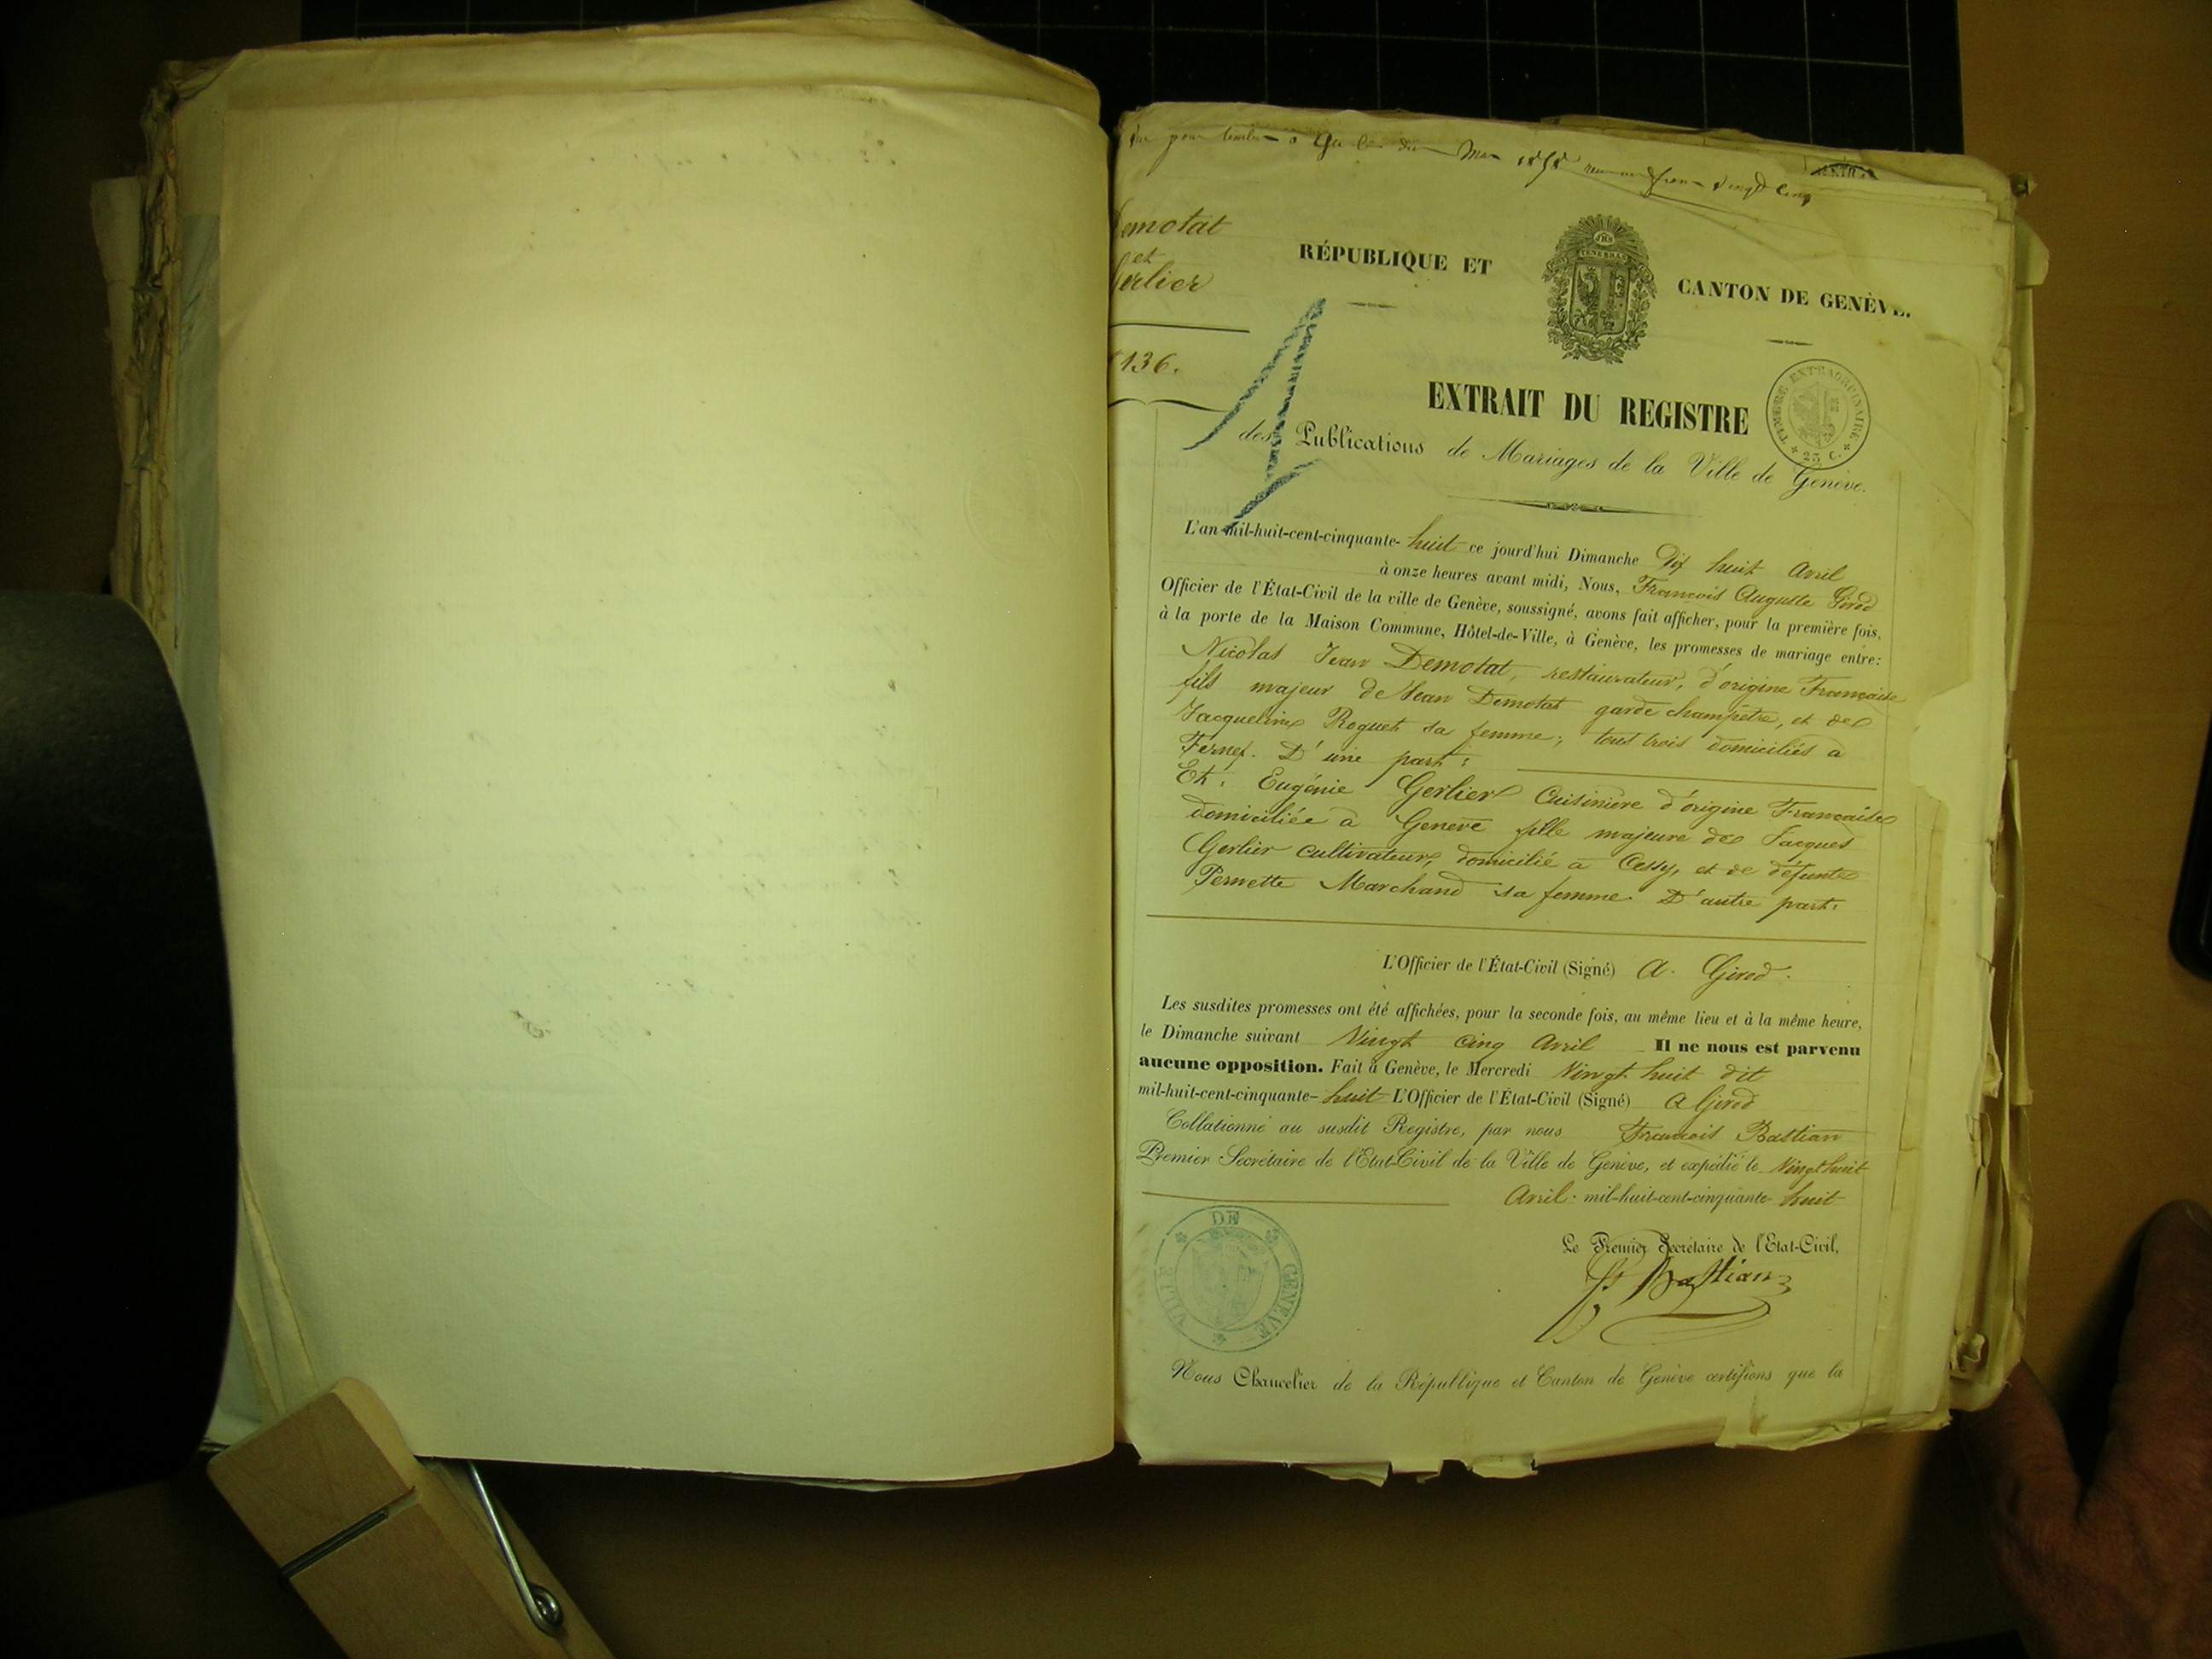 Demotat
et
Gerlier
136.
RÉPUBLIQUE ET CANTON DE GENÈVE.
TIMBRE EXTRAORDINAIRE
25 C.
EXTRAIT DU REGISTRE
des Publications de Mariages de la Ville de Genève.
L'an mil-huit-cent-cinquante- huit ce jourd'hui Dimanche Dix huit Avril
à onze heures avant midi, Nous, François Auguste Girod
Officier de l'État-Civil de la ville de Genève, soussigné, avons fait afficher, pour la première fois,
à la porte de la Maison Commune, Hôtel-de-Ville, à Genève, les promesses de mariage entre:
Nicolas Jean Demotat, restaurateur, d'origine Française
fils majeur de Jean Demotat garde champêtre, et de
Jacqueline Roguet sa femme; tous trois domiciliés à
Fernex. D'une part:
Et: Eugénie Gerlier Cuisinière d'origine Française
domiciliée à Genève fille majeure de Jacques
Gerlier cultivateur, domicilié à Cessy, et de défunte
Pernette Marchand sa femme D'autre part:
L'Officier de l'État-Civil (Signé) A. Girod.
Les susdites promesses ont été affichées, pour la seconde fois, au même lieu et à la même heure,
le Dimanche suivant Vingt Cinq Avril Il ne nous est parvenu
aucune opposition. Fait à Genève, le Mercredi Vingt huit dit
mil-huit-cent-cinquante- huit L'Officier de l'État-Civil (Signé) A Girod
Collationné au susdit Registre, par nous François Bastian
Premier Secrétaire de l'Etat-Civil de la Ville de Genève, et expédié le Vingt huit
Avril mil-huit-cent-cinquante huit
VILLE DE GENEVE
Le Premier Secrétaire de l'Etat-Civil,
Fs Bastian
Nous Chancelier de la République et Canton de Genève certifions que la